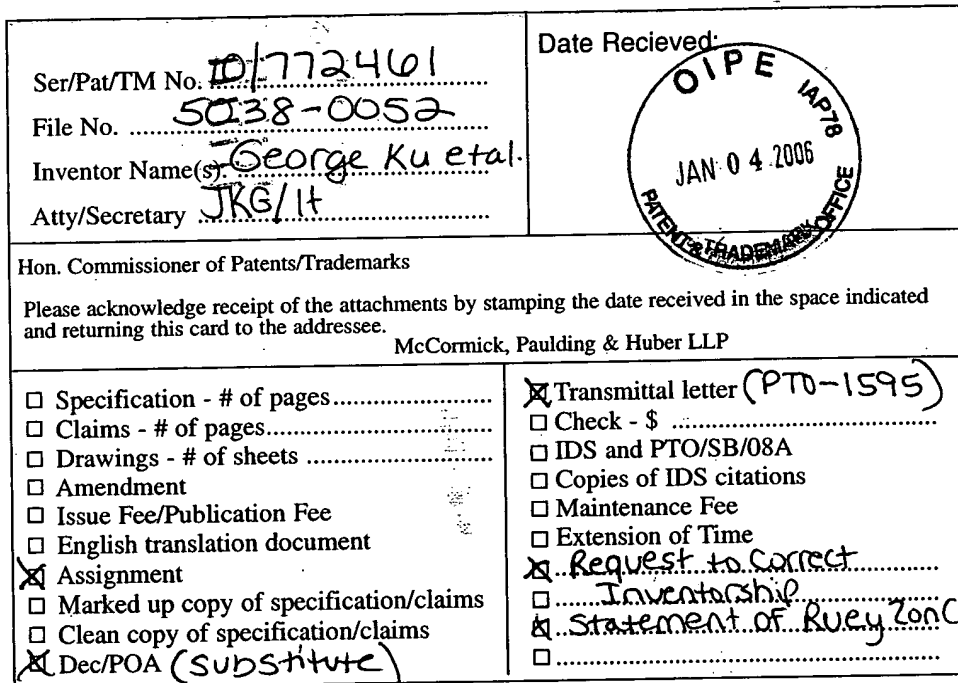 Ser/Pat/TM No. 10/772461
File No. 5038-0052
Inventor Name(s). George Ku et al.
Atty/Secretary JKG/lt
Date Recieved:
OIPE IAP78
JAN 04 2006
PATENT & TRADEMARK OFFICE
Hon. Commissioner of Patents/Trademarks
Please acknowledge receipt of the attachments by stamping the date received in the space indicated
and returning this card to the addressee.
McCormick, Paulding & Huber LLP
☐ Specification - # of pages
☐ Claims - # of pages
☐ Drawings - # of sheets
☐ Amendment
☐ Issue Fee/Publication Fee
☐ English translation document
☒ Assignment
☐ Marked up copy of specification/claims
☐ Clean copy of specification/claims
☒ Dec/POA (substitute)
☒ Transmittal letter (PTO-1595)
☐ Check - $
☐ IDS and PTO/SB/08A
☐ Copies of IDS citations
☐ Maintenance Fee
☐ Extension of Time
☒ Request to Correct
☐ Inventorship
☒ Statement of Ruey Zon C
☐